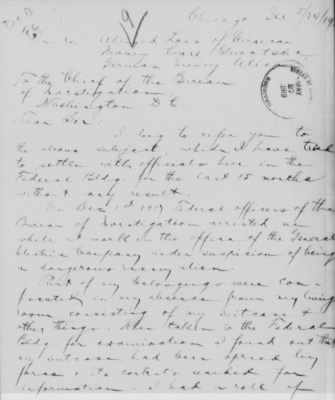 Chicago Ill 5/24/19
9
In re: Alleged Loss of American
Money Carl
German Enemy Alien
To the Chief of the Bureau
of Investigation
Washington D C
Dear Sir
I beg to refer you to
the above subject, which I have tried
to settle with officials here in the
Federal Bldg for the last 15 months
without any result.
On Dec 1st 1917 Federal officers of the
Bureau of Investigation arrested me
while at work in the office of the General
Electric Company under suspicion of being
a dangerous enemy alien
Part of my belongings were con-
fiscated in my absence from my living
room consisting of my suitcase &
other things. When taken to the Federal
Bldg. for examination I found out that
my suitcase had been opened by
force & its contents searched for
information. I had a roll of